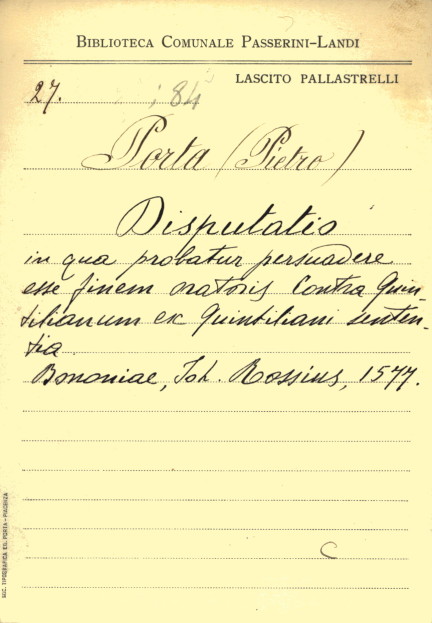 BIBLIOTECA COMUNALE PASSERINI-LANDI
LASCITO PALLASTRELLI
27. 84
Porta (Pietro)
Disputatio
in qua probatur persuadere
esse finem oratoris contra Quin-
tilianum ex Quintiliani senten-
tia.
Bononiae, Joh. Rossius, 1577.
C
SOC. TIPOGRAFICA ED. PORTA-PIACENZA